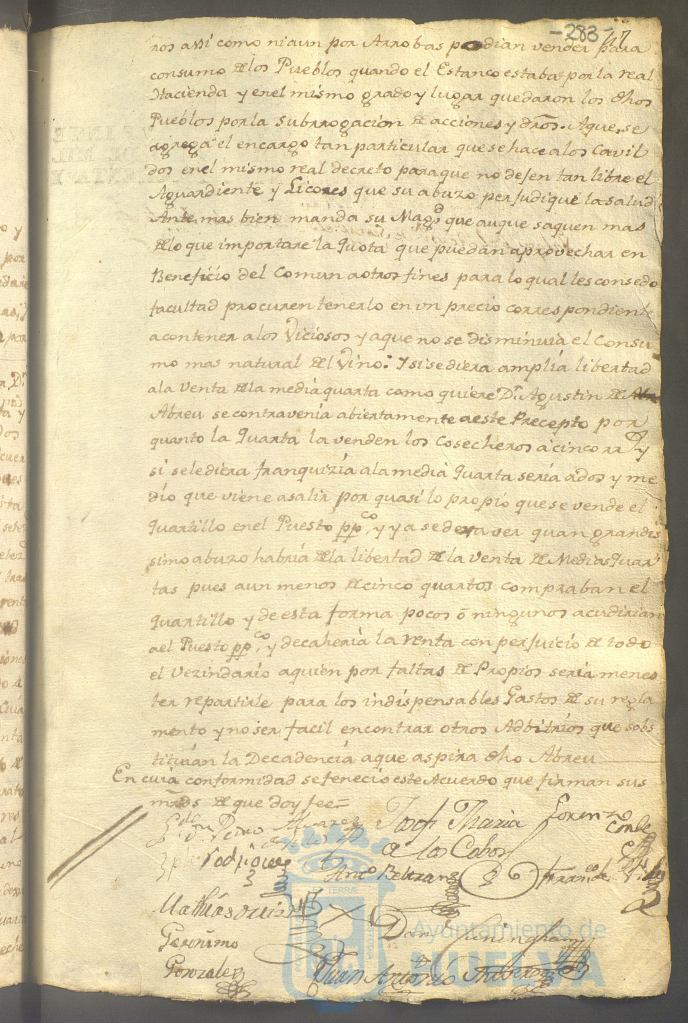 -283- 47
ros assi como ni aun por Arrobas podian vender para
consumo de los Pueblos quando el Estanco estaba por la real
Hacienda y en el mismo grado y lugar quedaron los dhos
Pueblos por la subrrogacion de acciones y dros. Aque se
agrega el encargo tan particular que se hace a los Cavil
dos en el mismo real decreto para que no dejen tan libre el
Aguardiente y Licores que su abuzo perjudique la salud
Ante mas bien manda su Magd que auque saquen mas
de lo que importare la Quota que puedan aprovechar en
Beneficio del Comun a otros fines para lo qual les consede
facultad procuren tenerlo en un precio correspondiente
a contener a los Viciosos y a que no se disminuia el Consu
mo mas natural del Vino: Y si se diera amplia libertad
a la Venta de la media quarta como quiere Dn. Agustin de
Abreu se contravenia abiertamente a este Precepto por
quanto la Quarta la venden los Cosecheros a cinco rr y
si se le diera franquizia a la media Quarta seria a dos y me
dio que viene a salir por quasi lo propio que se vende el
Quartillo en el Puesto ppco, y ya se dexa ver quan grandis
simo abuzo habria de la libertad de la venta de Medias Quar
tas pues aun menos de cinco quartos compraban el
quartillo y de esta forma pocos ô ningunos acudirian
a el Puesto ppco, y decaheria la renta con perjuicio de todo
el Vezindario a quien por faltas de Propios seria menes
ter repartirle para los indispensables Gastos de su regla
mento y no ser facil encontrar otros Adbitrios que sobs
tituian la Decadencia a que aspira dho Abreu
En cuia conformidad se fenecio este Acuerdo que firman sus
mrds de que doy fee=
Pedro Josef Maria Lorenzo
Rodrigues de los Cobos Conde
Anto. Beltran Franco de
Mathias
Geronimo Dan. Cuningham
Gonzalez Juan Antonio
Ayuntamiento de
HUELVA